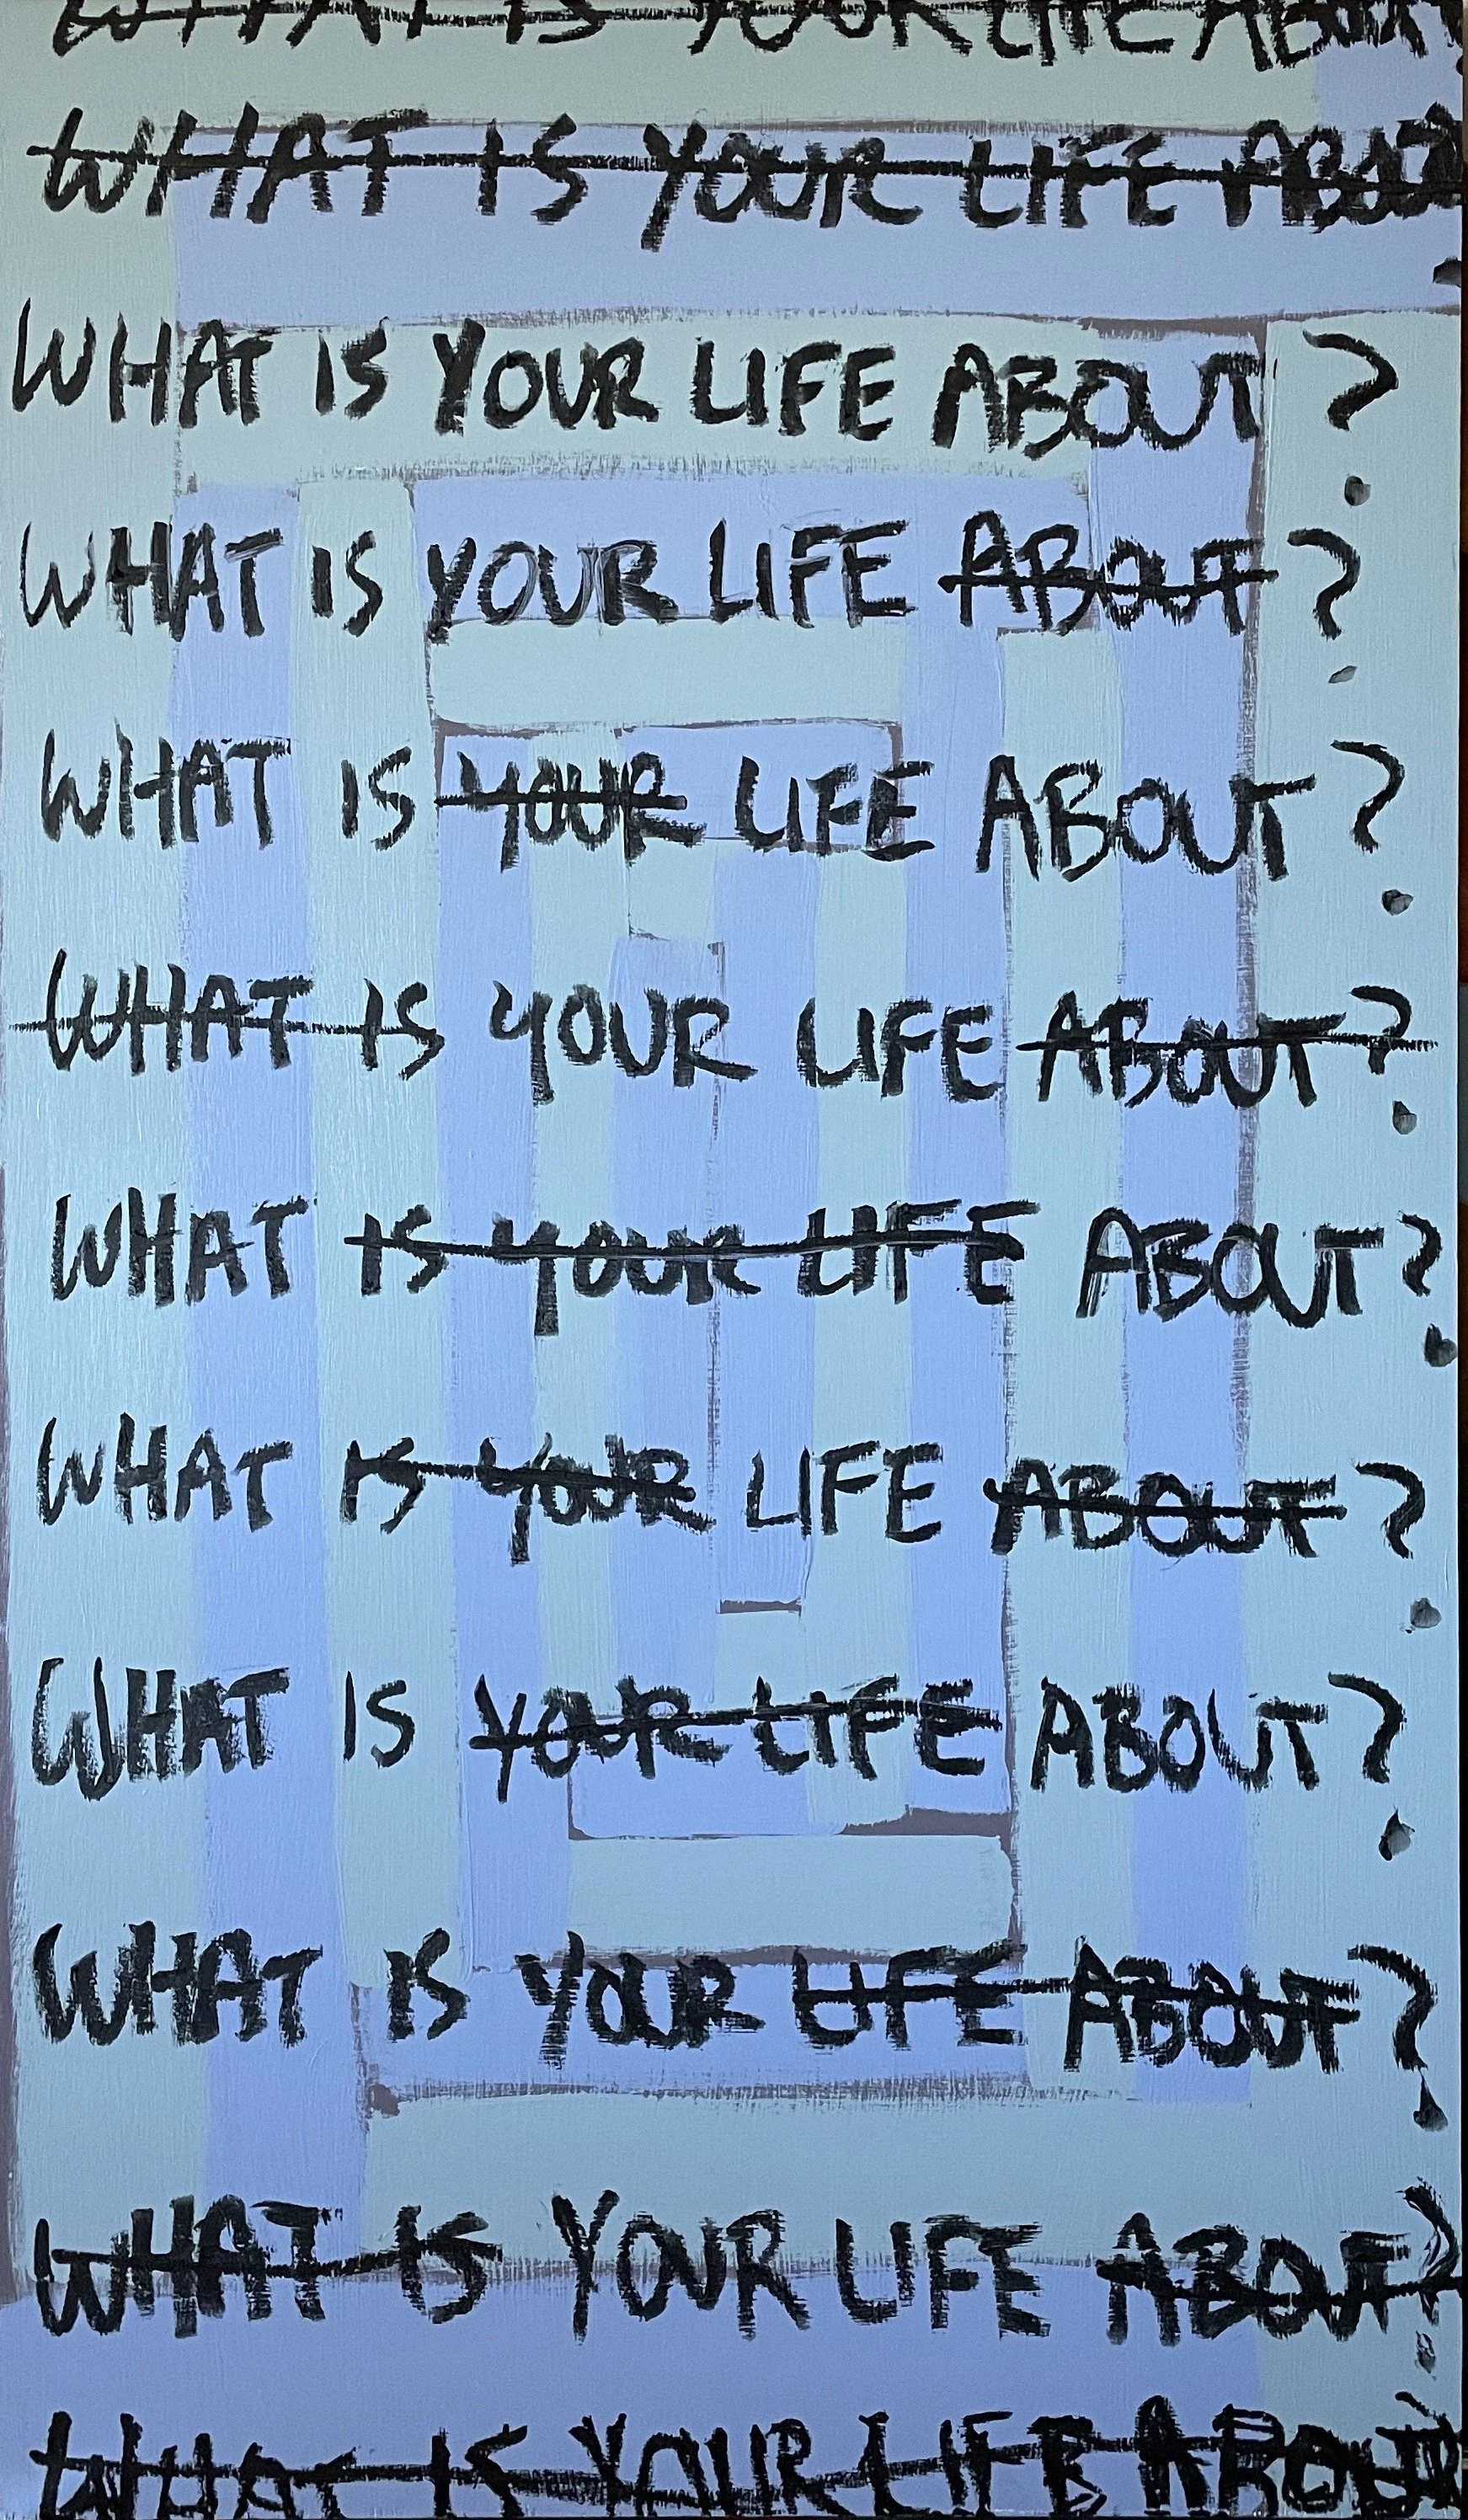 WHAT IS YOUR LIFE ABOUT
WHAT IS YOUR LIFE ABOUT?
WHAT IS YOUR LIFE ABOUT?
WHAT IS YOUR LIFE ABOUT?
WHAT IS YOUR LIFE ABOUT?
WHAT IS YOUR LIFE ABOUT?
WHAT IS YOUR LIFE ABOUT?
WHAT IS YOUR LIFE ABOUT?
WHAT IS YOUR LIFE ABOUT?
WHAT IS YOUR LIFE ABOUT?
WHAT IS YOUR LIFE ABOUT?
WHAT IS YOUR LIFE ABOUT